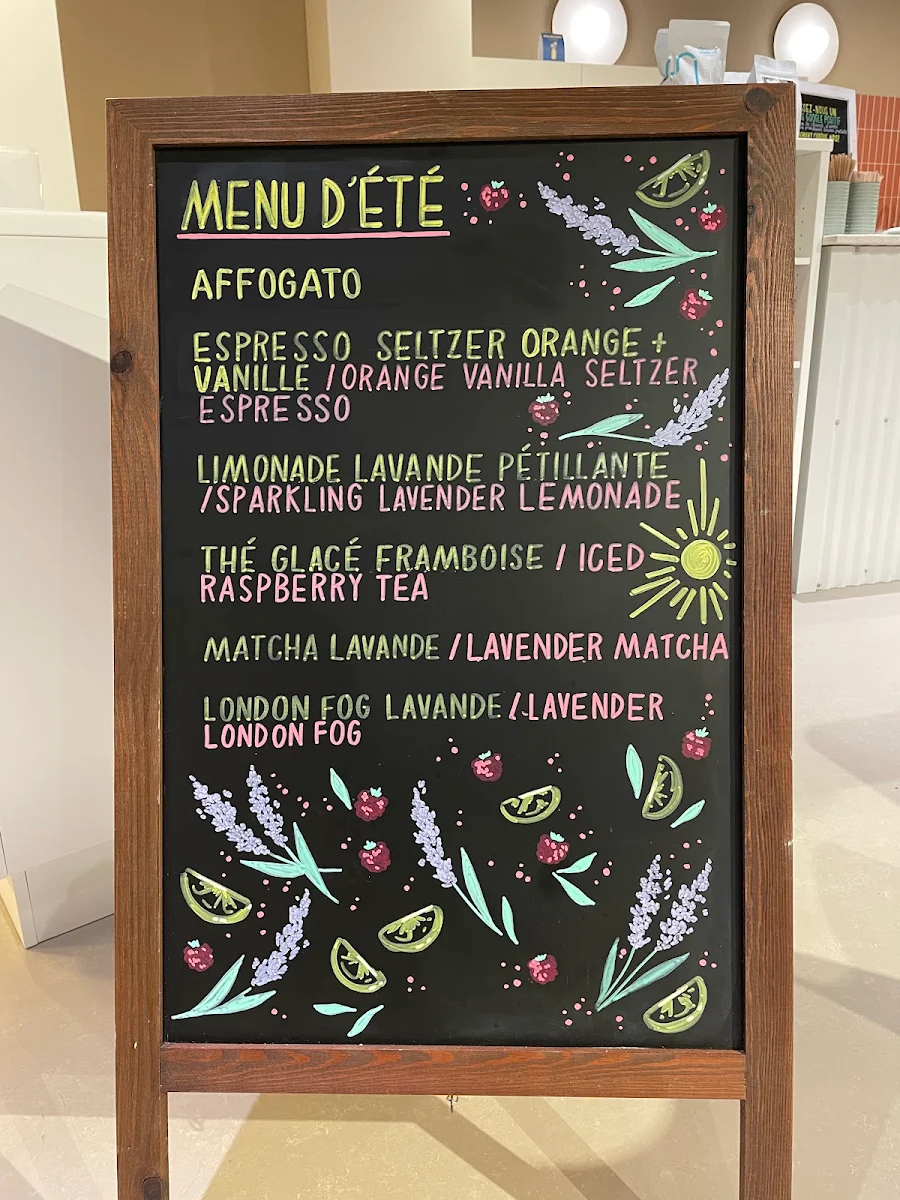 MENU D'ÉTÉ
AFFOGATO
ESPRESSO SELTZER ORANGE +
VANILLE / ORANGE VANILLA SELTZER
ESPRESSO
LIMONADE LAVANDE PÉTILLANTE
/SPARKLING LAVENDER LEMONADE
THÉ GLACÉ FRAMBOISE / ICED
RASPBERRY TEA
MATCHA LAVANDE / LAVENDER MATCHA
LONDON FOG LAVANDE / LAVENDER
LONDON FOG